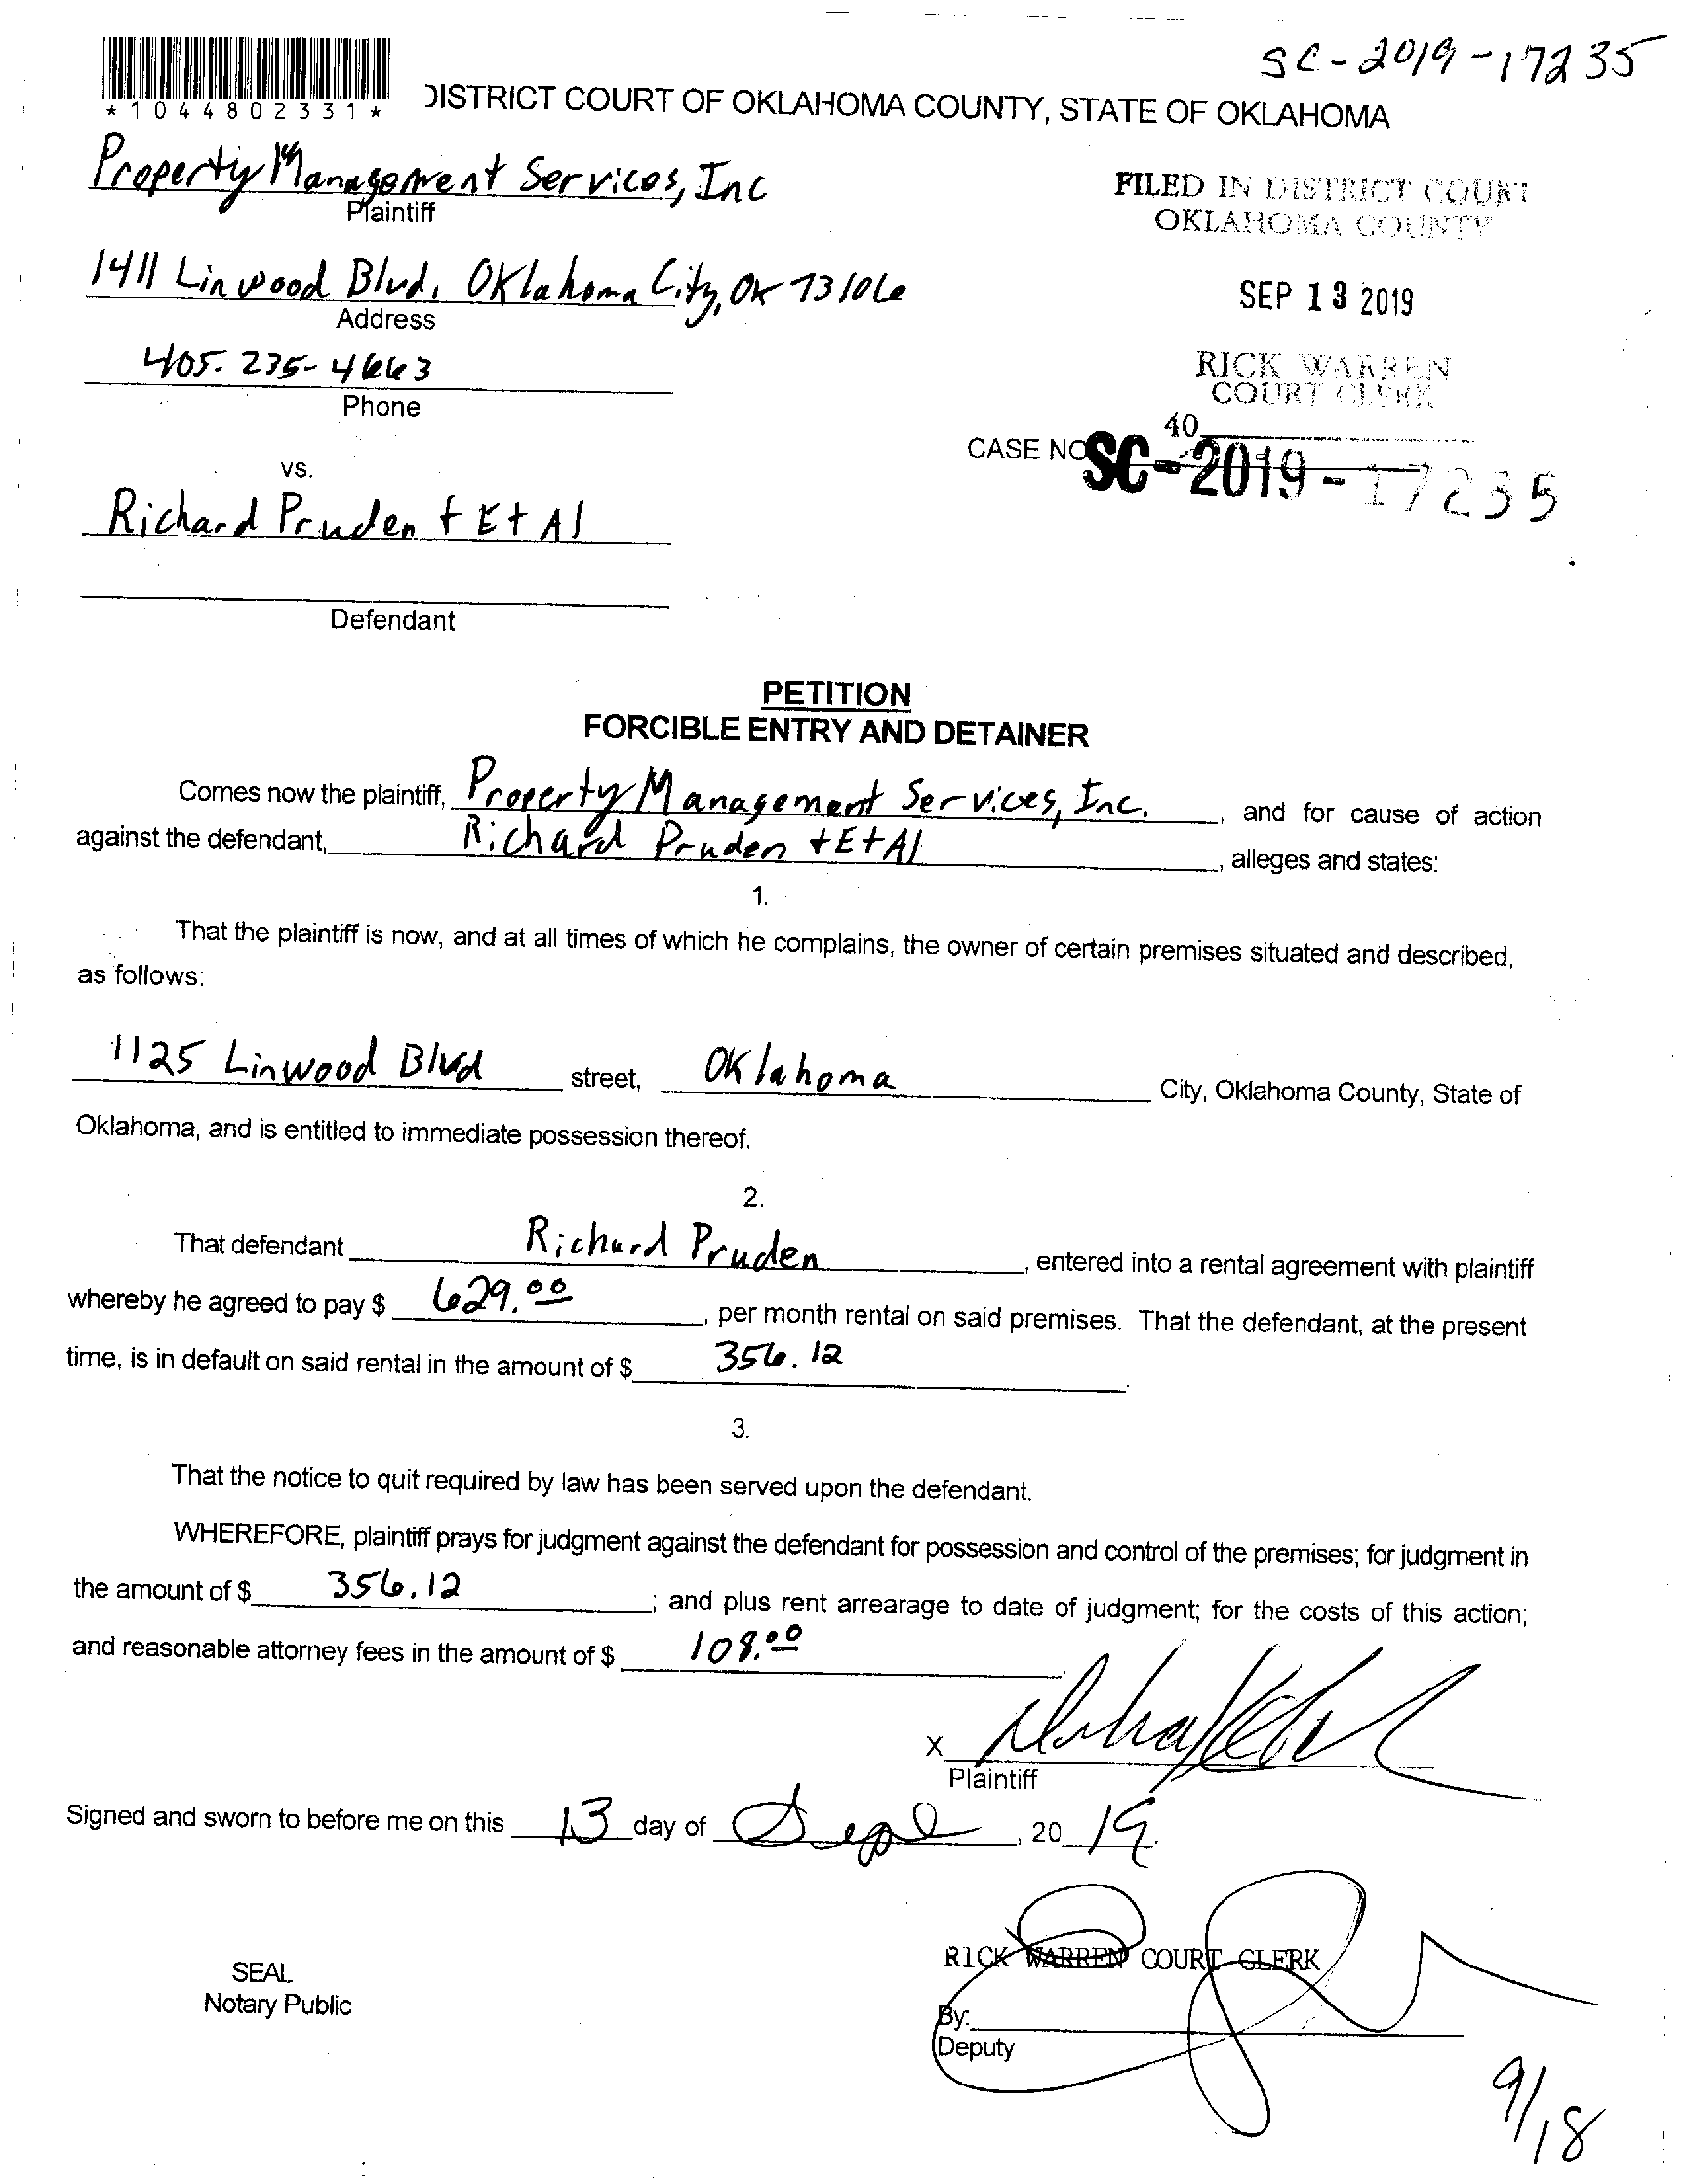 SC-2019-17235
*1044802331*
DISTRICT COURT OF OKLAHOMA COUNTY, STATE OF OKLAHOMA
Property Management Services, Inc
Plaintiff
FILED IN DISTRICT COURT
OKLAHOMA COUNTY
1411 Linwood Blvd, Oklahoma City, OK 73106
Address
SEP 13 2019
405-235-4663
Phone
RICK WARREN
COURT CLERK
40
CASE NO SC-2019-17235
vs.
Richard Pruden + Et Al
Defendant
PETITION
FORCIBLE ENTRY AND DETAINER
Comes now the plaintiff, Property Management Services, Inc. , and for cause of action
against the defendant, Richard Pruden + Et Al , alleges and states:
1.
That the plaintiff is now, and at all times of which he complains, the owner of certain premises situated and described,
as follows:
1125 Linwood Blvd street, Oklahoma City, Oklahoma County, State of
Oklahoma, and is entitled to immediate possession thereof.
2.
That defendant Richard Pruden , entered into a rental agreement with plaintiff
whereby he agreed to pay $ 629.00 , per month rental on said premises. That the defendant, at the present
time, is in default on said rental in the amount of $ 356.12 .
3.
That the notice to quit required by law has been served upon the defendant.
WHEREFORE, plaintiff prays for judgment against the defendant for possession and control of the premises; for judgment in
the amount of $ 356.12 ; and plus rent arrearage to date of judgment; for the costs of this action;
and reasonable attorney fees in the amount of $ 108.00
X
Plaintiff
Signed and sworn to before me on this 13 day of Sept , 2019.
RICK WARREN COURT CLERK
SEAL
Notary Public
By:
Deputy
9/18